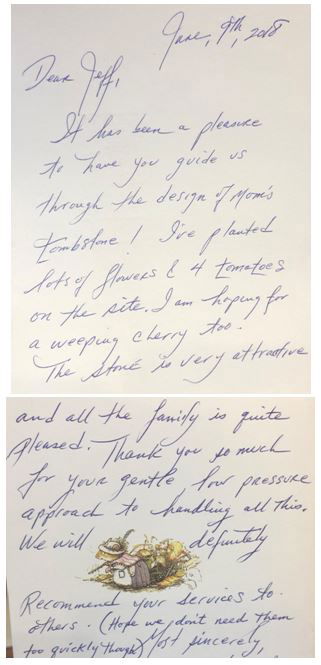 June, 9th, 2018
Dear Jeff,
It has been a pleasure
to have you guide us
through the design of Mom's
tombstone! I've planted
lots of flowers & 4 tomatoes
on the site. I am hoping for
a weeping cherry too.
The stone is very attractive
and all the family is quite
pleased. Thank you so much
for your gentle low pressure
approach to handling all this.
We will definitely
Recommend your services to
others. (Hope we don't need them
too quickly though) Most sincerely,